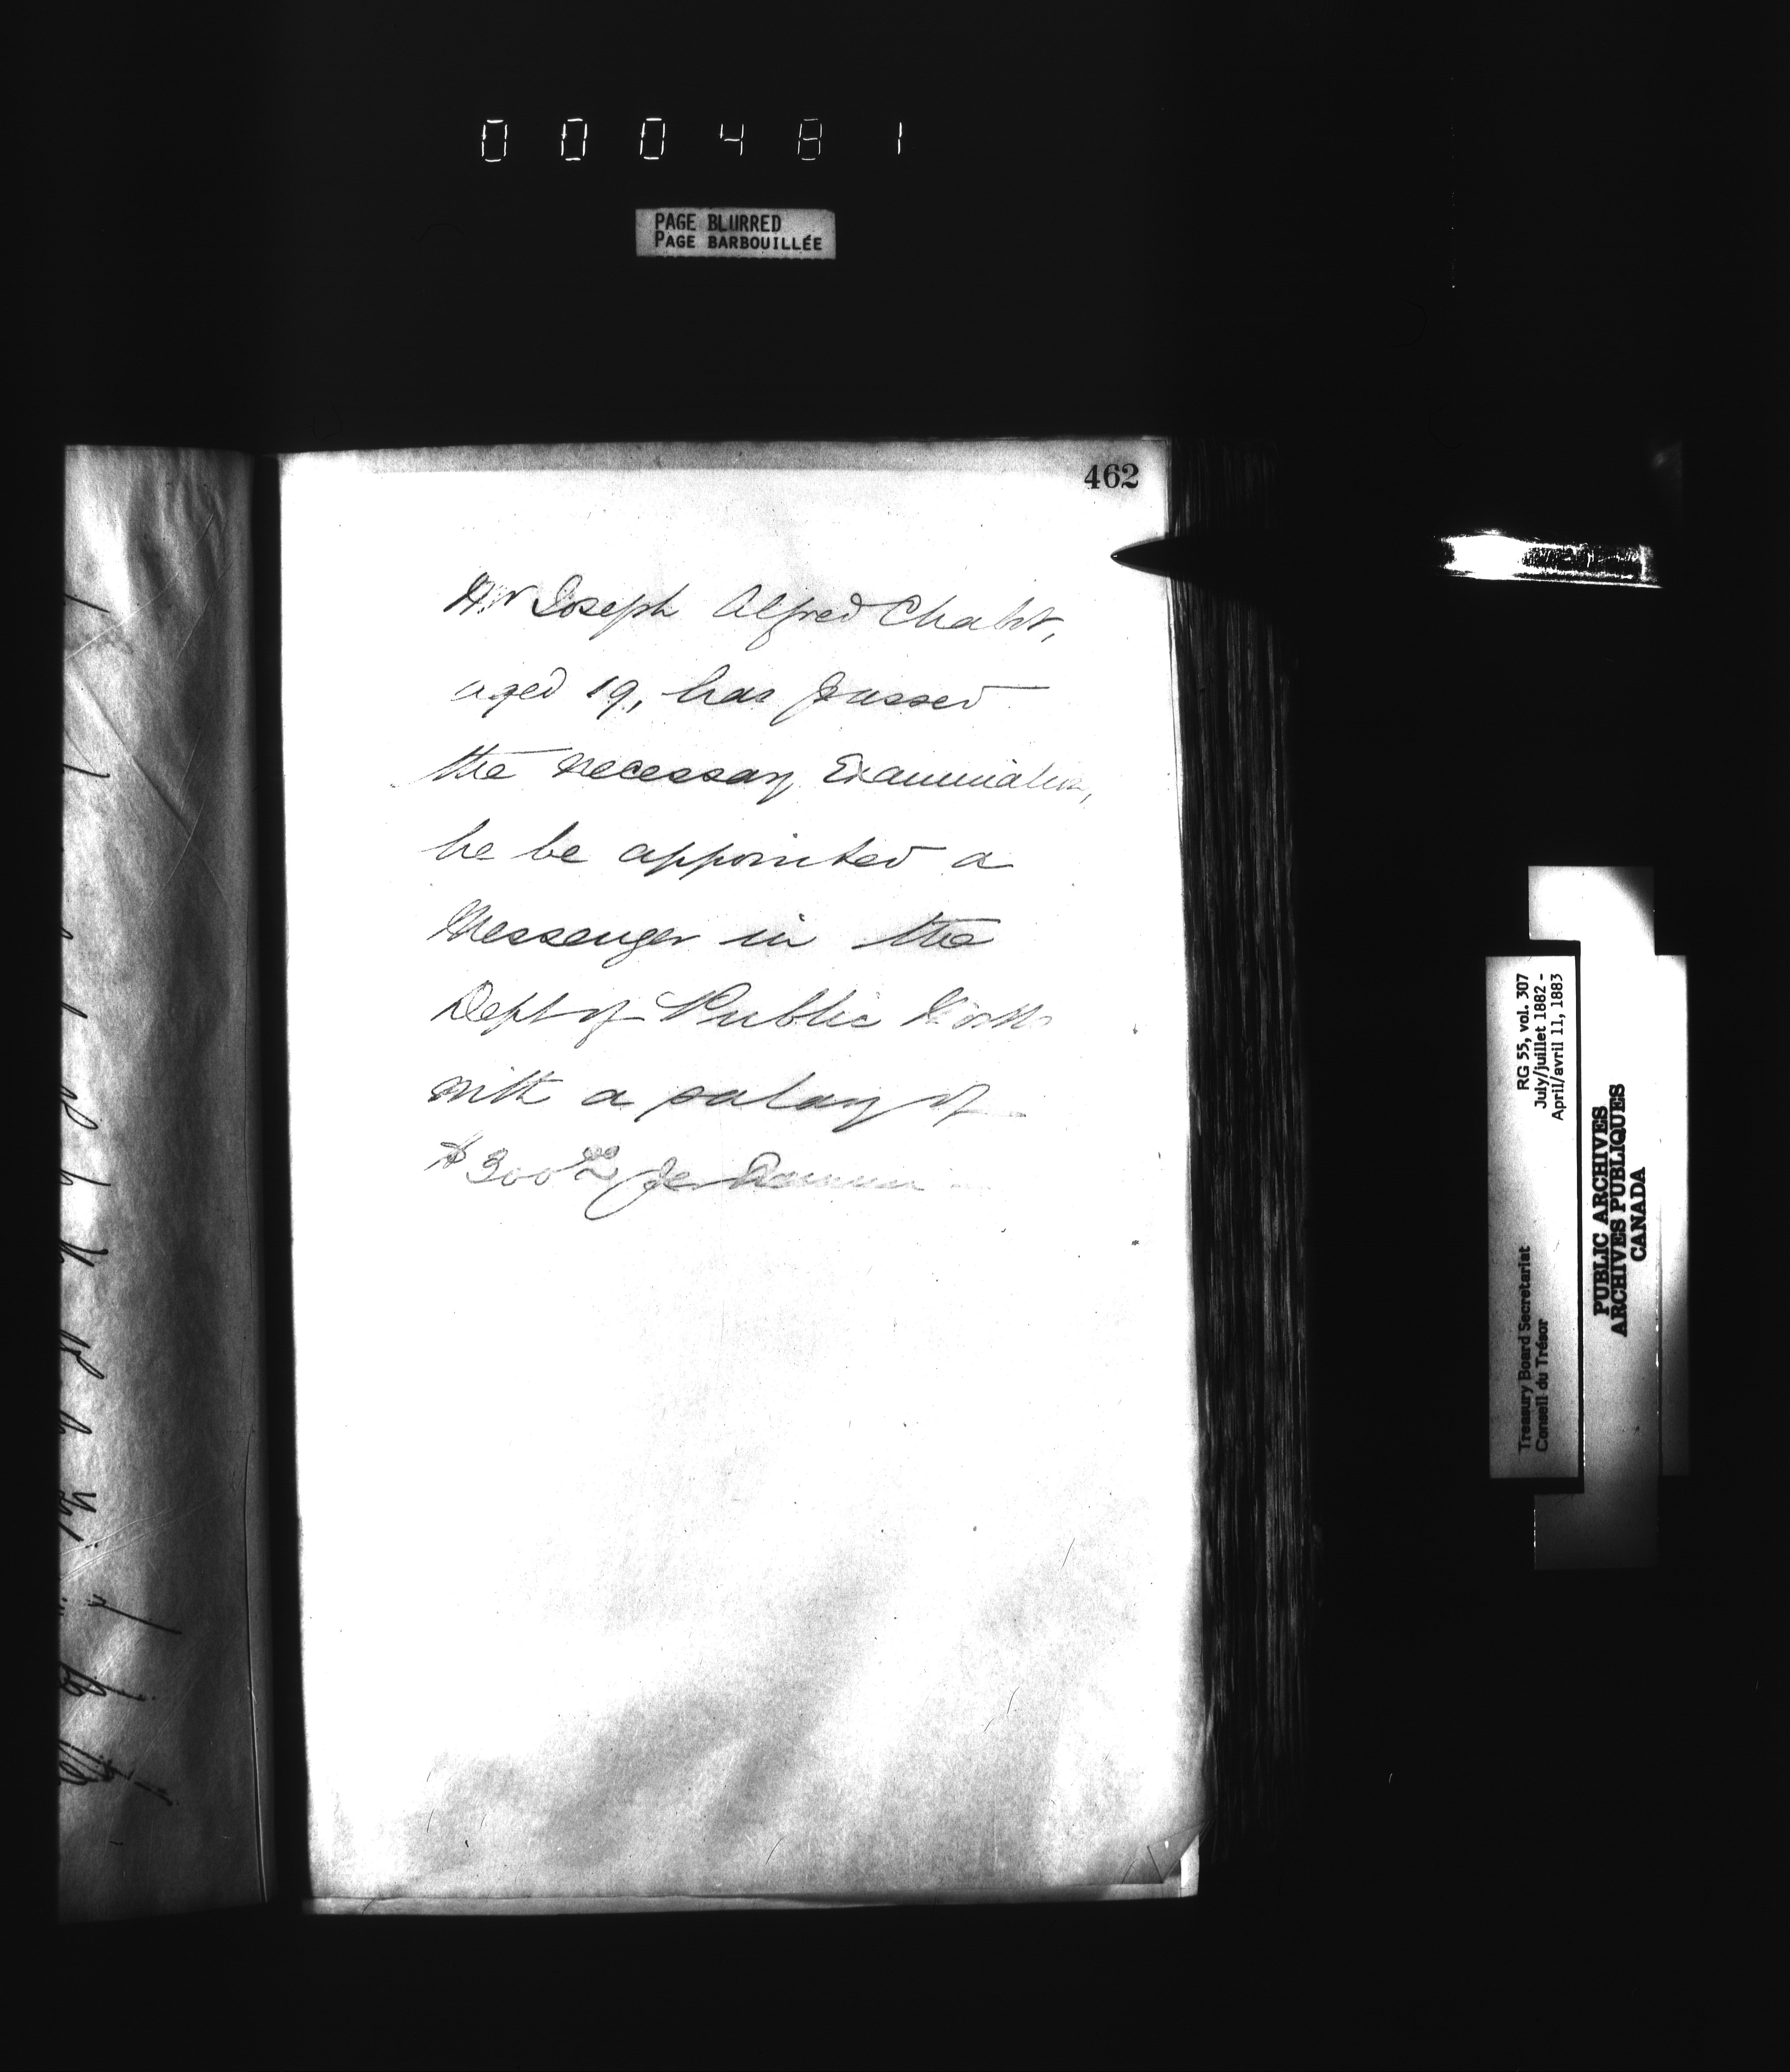 000481
PAGE BLURRED
PAGE BARBOUILLÉE
462
Mr Joseph Alfred Chabot,
aged 19, has passed
the necessary Examination,
he be appointed a
Messenger in the
Dept of Public Works
with a salary of
$300.00 per Annum
RG 55, vol. 307
July/juillet 1882 -
April/avril 11, 1883
Treasury Board Secretariat
Conseil du Trésor
PUBLIC ARCHIVES
ARCHIVES PUBLIQUES
CANADA